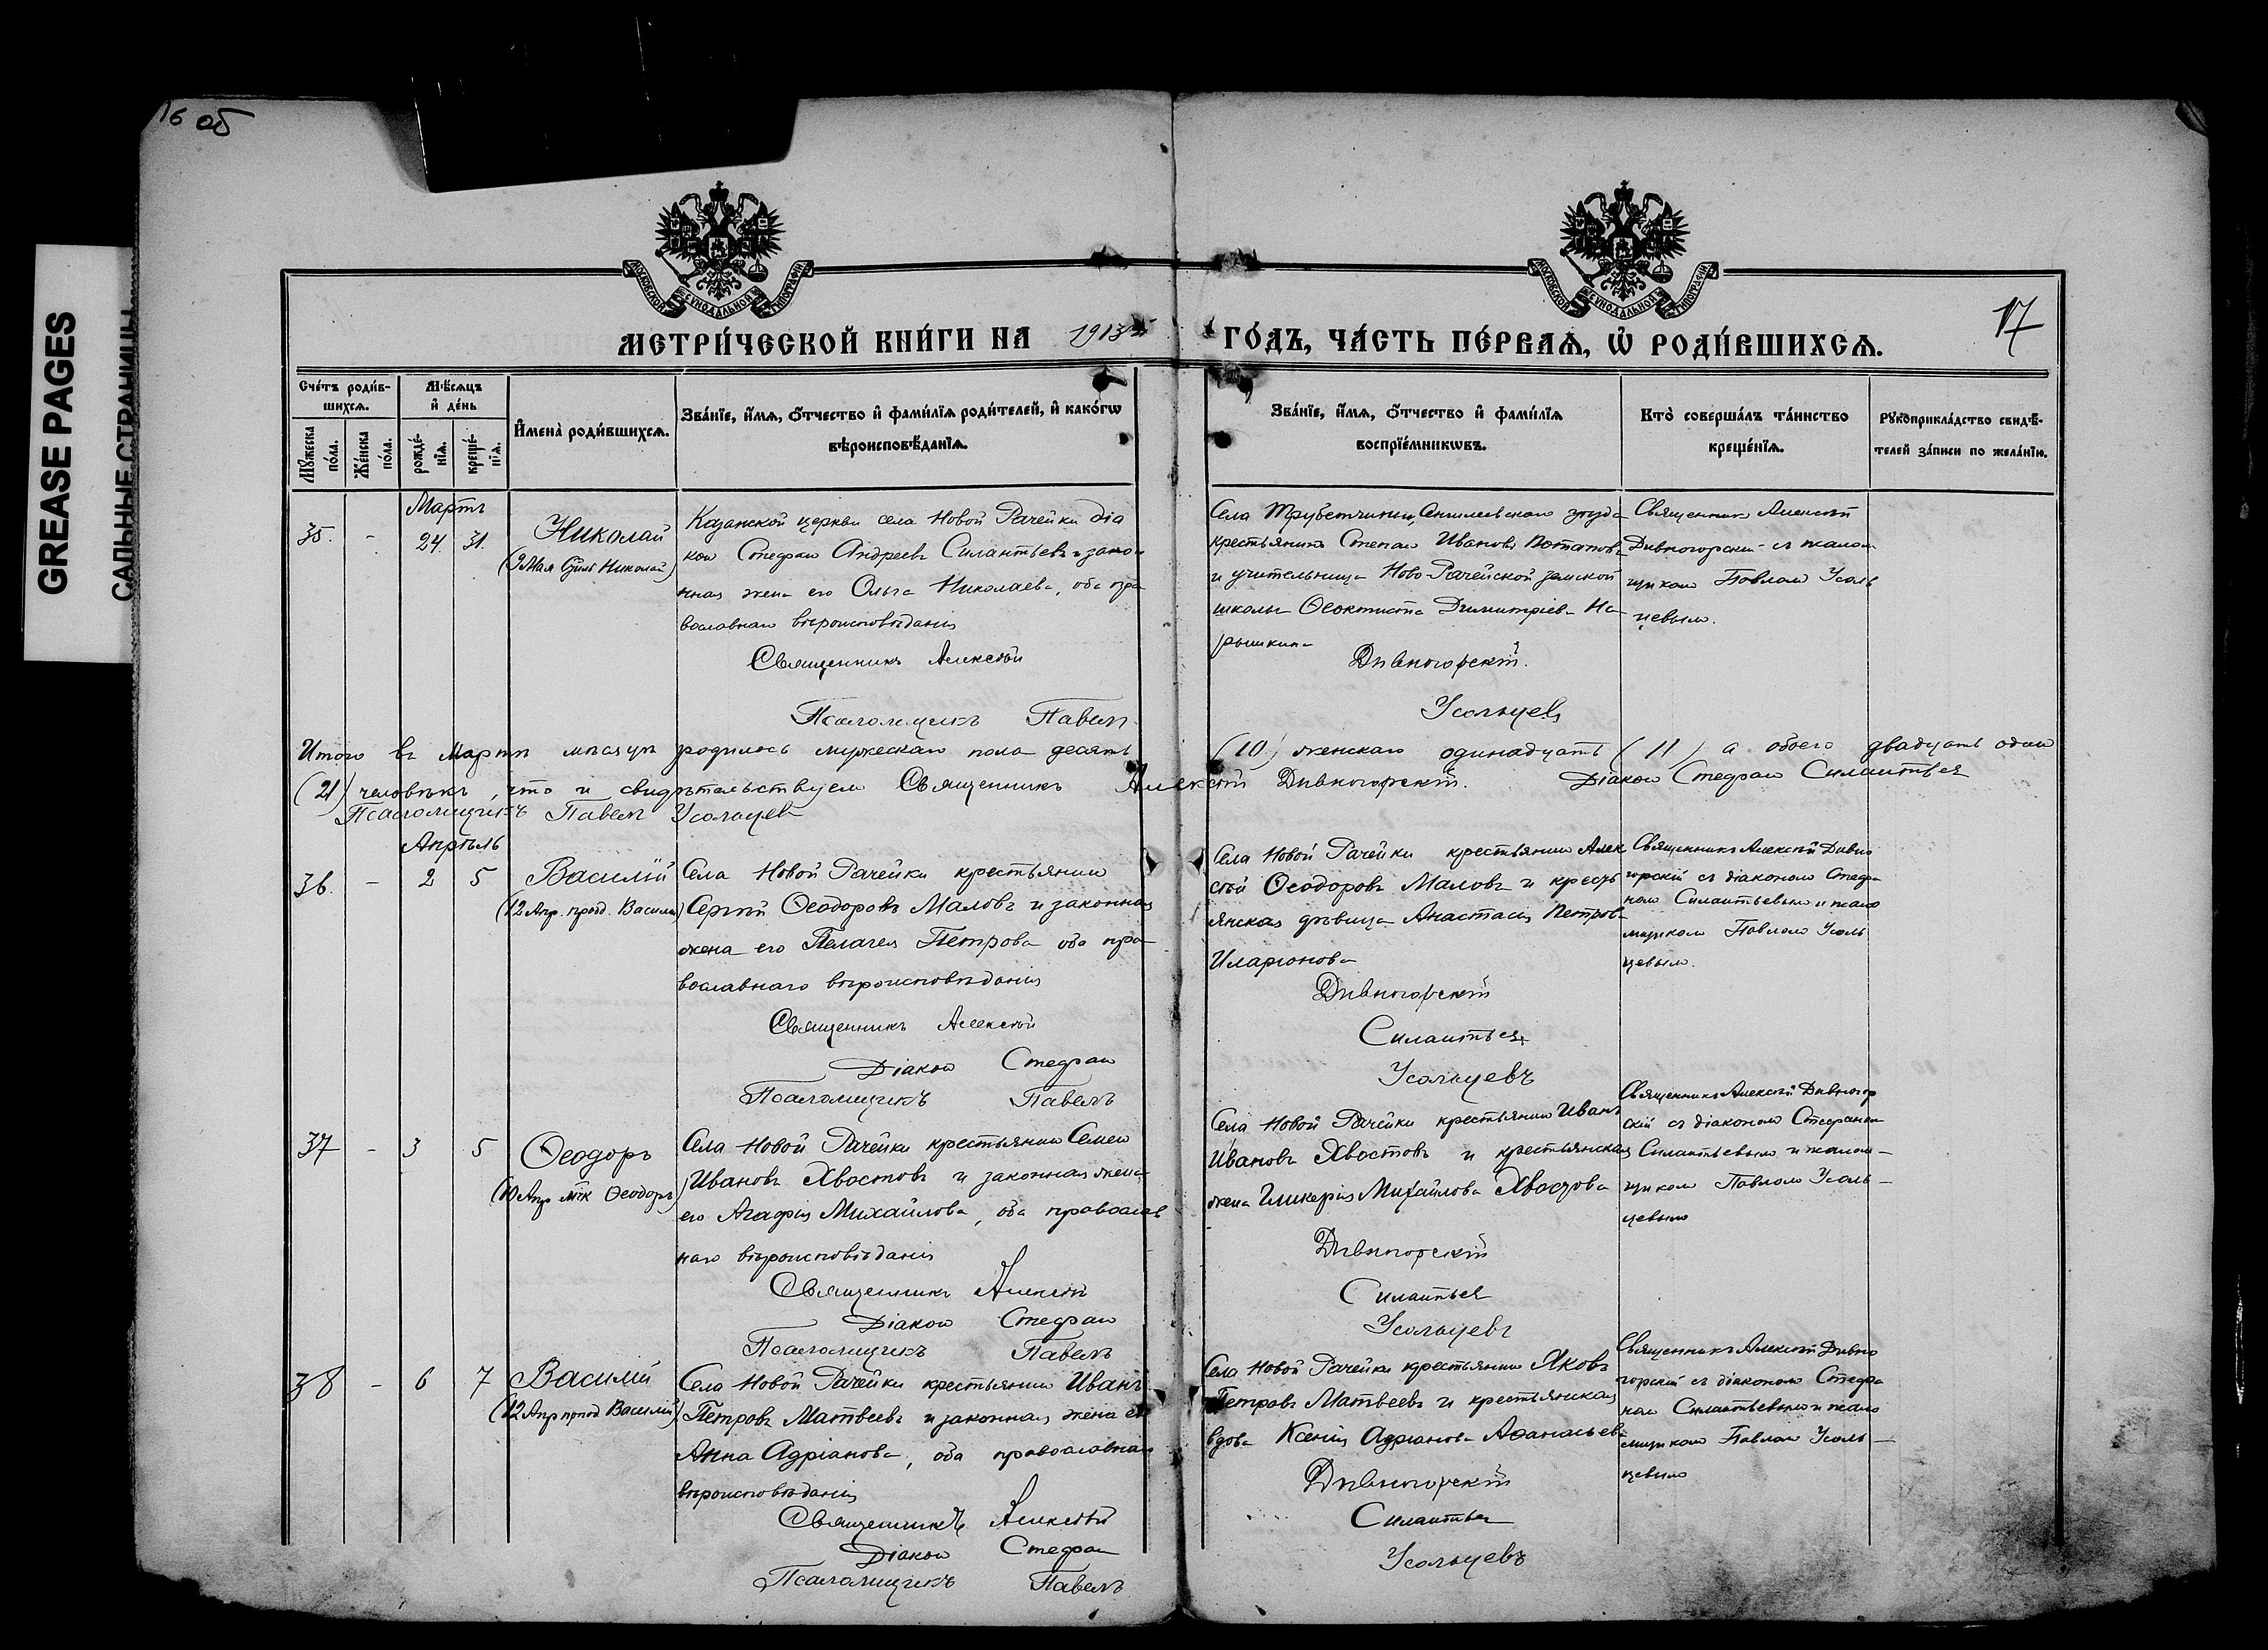 16 об
GREASE PAGES
САЛЬНЫЕ СТРАНИЦЫ
МОСКОВСКОЙ СѴНОДАЛЬНОЙ ТИПОГРАФІИ
МОСКОВСКОЙ СѴНОДАЛЬНОЙ ТИПОГРАФІИ
17
МЕТРИ́ЧЕСКОЙ КНИ́ГИ НА 1913й ГО́ДЪ, ЧА́СТЬ ПЕ́РВАѦ, Ѡ҆ РОДИ́ВШИХСѦ.
Сче́тъ роди́в-
шихсѧ.
Мꙋ́жеска
по́ла.
Же́нска
по́ла.
Мѣ́сѧцъ
и҆ де́нь
рожде́-
нїѧ.
креще́-
нїѧ.
И҆мена̀ роди́вшихсѧ.
Зва́нїе, и҆́мѧ, ѻ҆́тчество и҆ фамѝлїѧ роди́телей, и҆ како́гѡ
вѣроисповѣ́данїѧ.
Зва́нїе, и҆́мѧ, ѻ҆́тчество и҆ фами́лїѧ
воспрїе́мникѡвъ.
Кто̀ соверша́лъ та́инство
креще́нїѧ.
Рꙋкоприкла́дство свидѣ́-
телей за́писи по жела́нїю.
Мартъ
35. - 24. 31. Николай
(9 Мая Свят. Николай)
Казанской церкви села Новой Рачейки діа
кон Стефан Андреевъ Силантьевъ и закон
ная жена его Ольга Николаева, оба пра
вославнаго вѣроисповѣданія
Священникъ Алексѣй
Псаломщикъ Павелъ
Села Трубетчины, Сенгилеевскаго уѣзда
крестьянинъ Степан Ивановъ Потаповъ
и учительница Ново-Рачейской земской
школы Ѳеоктиста Димитріева На
рышкина
Дивногорскій.
Усольцевъ
Священник Алексѣй
Дивногорскій съ псалом
щиком Павлом Усоль
цевым.
Итого въ Мартѣ мѣсяцѣ родилось мужескаго пола десять (10) женскаго одинадцать (11) а обоего двадцать один
(21) человѣкъ, что и свидѣтельствуем Священникъ Алексѣй Дивногорскій. Діакон Стефан Силантьев
Псаломщикъ Павелъ Усольцев
Апрѣль
36. - 2 5 Василій
(12 Апр. препод. Василій)
Села Новой Рачейки крестьянин
Сергѣй Ѳеодоровъ Маловъ и законная
жена его Пелагея Петрова оба пра
вославнаго вѣроисповѣданія
Священникъ Алексѣй
Діакон Стефан
Псаломщикъ Павелъ
Села Новой Рачейки крестьянин Алек
сѣй Ѳеодоровъ Маловъ и кресть
янская дѣвица Анастасія Петрова
Иларіонова
Дивногорскій
Силантьев
Усольцевъ
Священникъ Алексѣй Дивно
горскій съ діаконом Стефа
ном Силантьевым и псало
мщиком Павлом Усоль
цевым.
37 - 3 5 Ѳеодоръ
(10 Апр. мчк Ѳеодоръ)
Села Новой Рачейки крестьянин Семен
Ивановъ Хвостовъ и законная жена
его Агафія Михайлова, оба православ
наго вѣроисповѣданія
Священникъ Алексѣй
Діакон Стефан
Псаломщикъ Павелъ
Села Новой Рачейки крестьянин Иванъ
Ивановъ Хвостовъ и крестьянская
жена Гликерія Михайлова Хвостова
Дивногорскій
Силантьев
Усольцевъ
Священникъ Алексѣй Дивногор
скій съ діаконом Стефаном
Силантьевым и псалом-
щиком Павлом Усоль-
цевым
38 - 6 7 Василій
(12 Апр препод Василій)
Села Новой Рачейки крестьянин Иванъ
Петровъ Матвеевъ и законная жена его
Анна Адріанова, оба православнаго
вѣроисповѣданія
Священникъ Алексѣй
Діакон Стефан
Псаломщикъ Павелъ
Села Новой Рачейки крестьянин Яковъ
Петровъ Матвеевъ и крестьянская
вдова Ксенія Адріанова Аѳанасьева
Дивногорскій
Силантьев
Усольцевъ
Священникъ Алексѣй Дивно
горскій съ діаконом Стефа
ном Силантьевым и псало
мщиком Павлом Усоль-
цевым